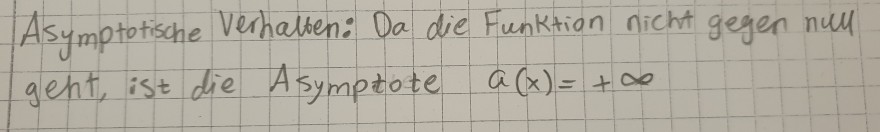 Asymptotische Verhalten: Da die Funktion nicht gegen null
geht, ist die Asymptote a(x) = +∞